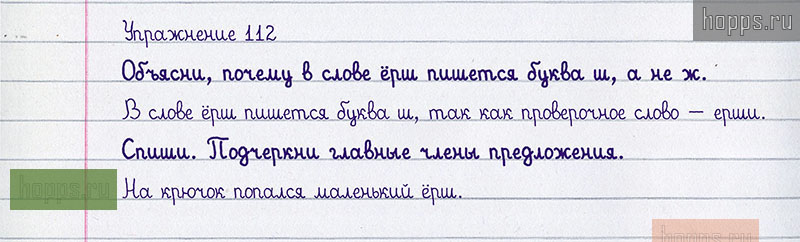 hopps.ru
Упражнение 112
Объясни, почему в слове ёрш пишется буква ш, а не ж.
В слове ёрш пишется буква ш, так как проверочное слово – ерши.
Спиши. Подчеркни главные члены предложения.
hopps.ru
На крючок попался маленький ёрш.
hopps.ru